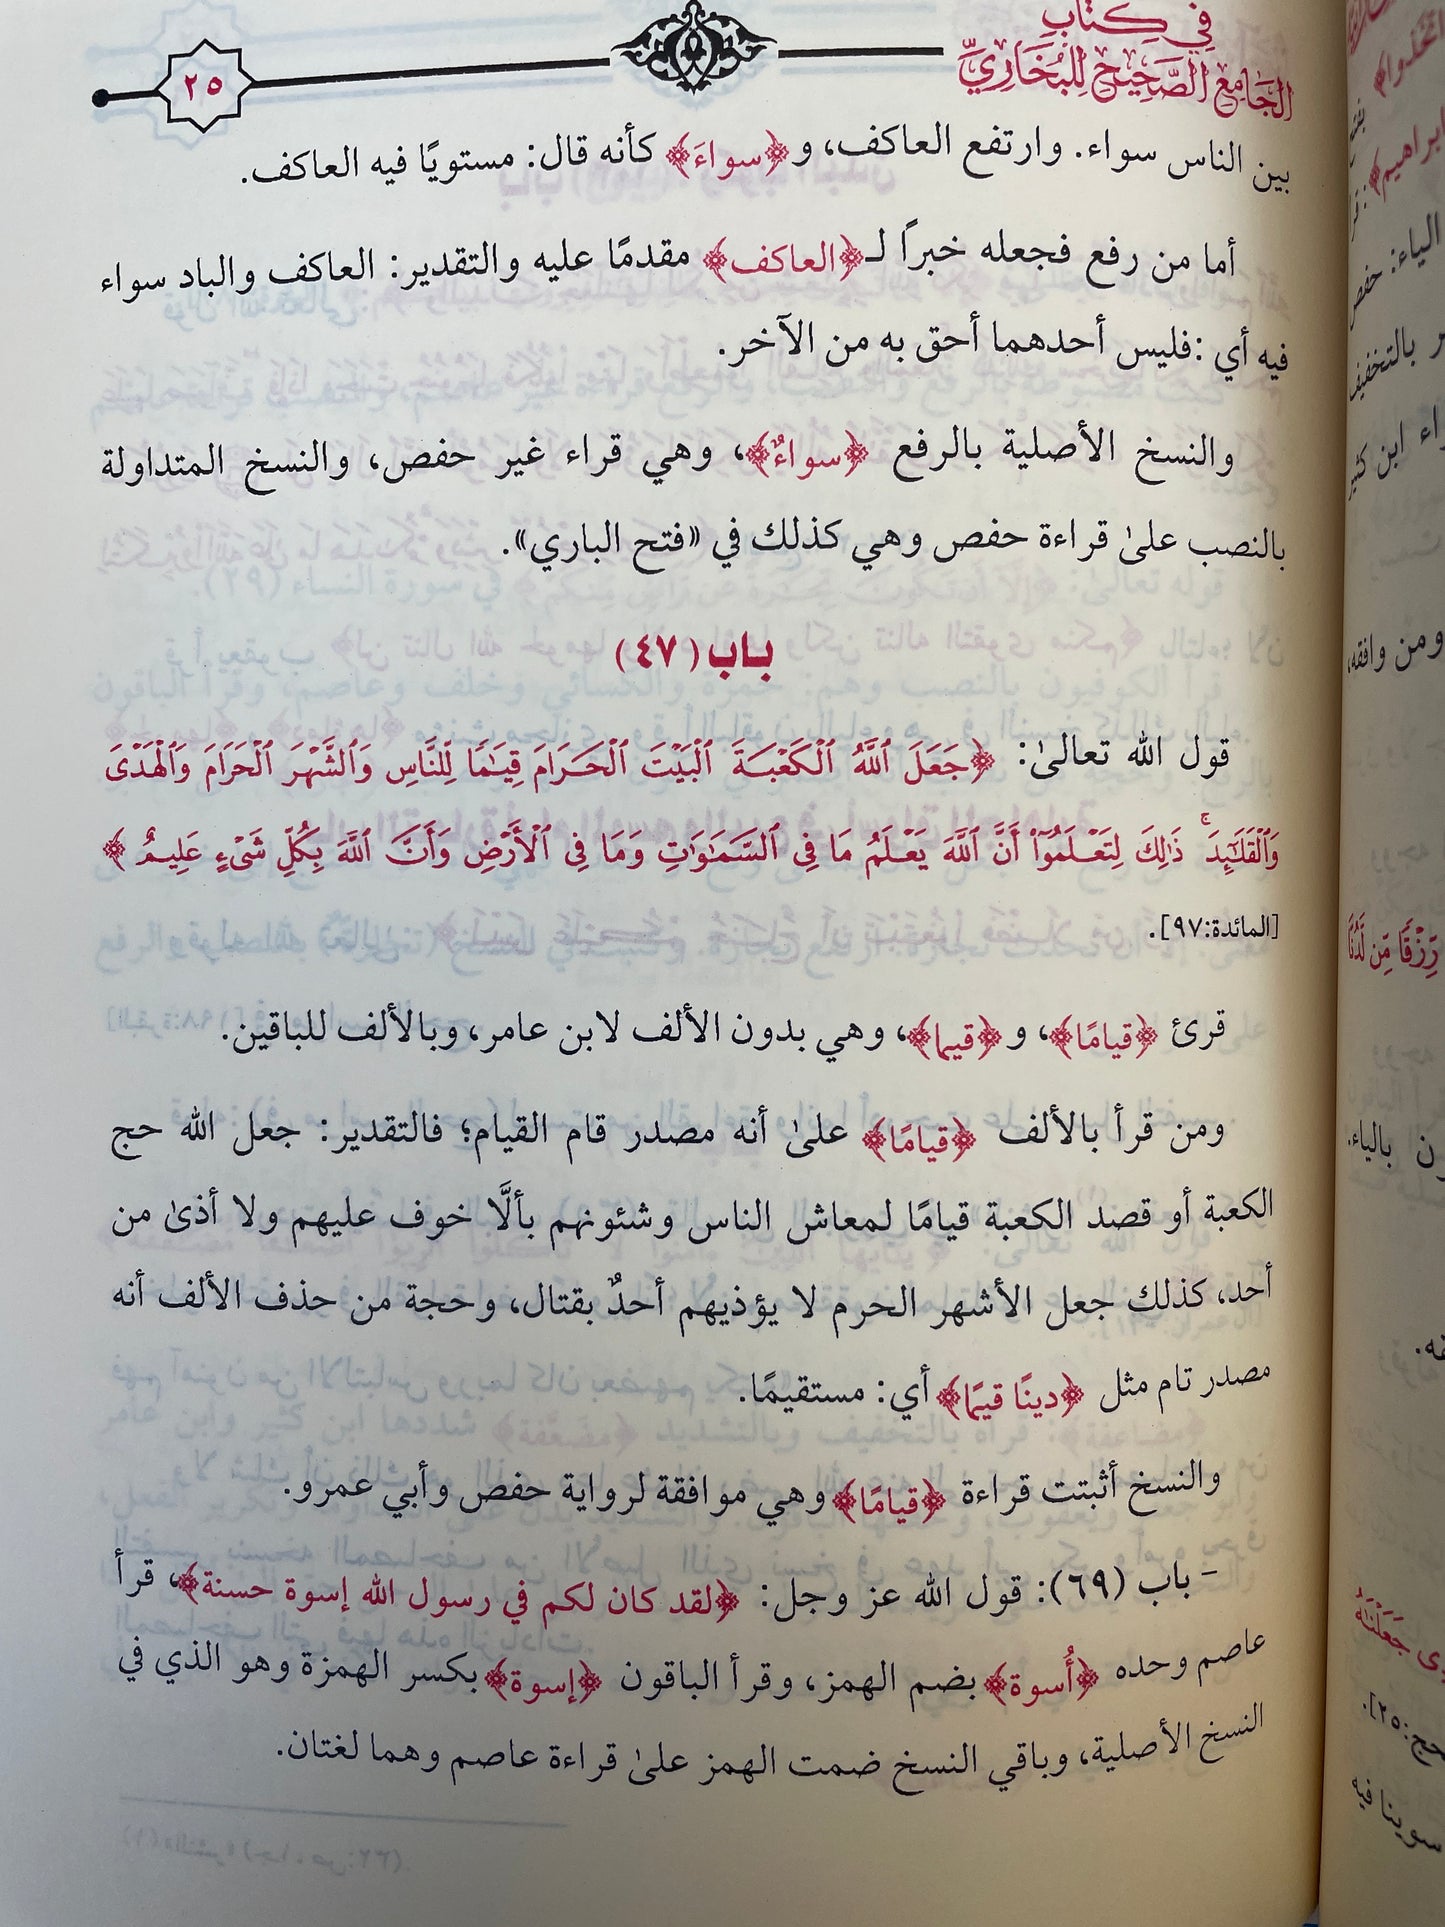 في كتاب
الجامع الصحيح للبخاري
٢٥
بين الناس سواء. وارتفع العاكف، و﴿سواءَ﴾ كأنه قال: مستويًا فيه العاكف.
أما من رفع فجعله خبراً لـ﴿العاكف﴾ مقدمًا عليه والتقدير: العاكف والباد سواء
فيه أي :فليس أحدهما أحق به من الآخر.
والنسخ الأصلية بالرفع ﴿سواءٌ﴾، وهي قراء غير حفص، والنسخ المتداولة
بالنصب علىٰ قراءة حفص وهي كذلك في «فتح الباري».
باب (٤٧)
قول الله تعالىٰ: ﴿جَعَلَ ٱللَّهُ ٱلۡكَعۡبَةَ ٱلۡبَيۡتَ ٱلۡحَرَامَ قِيَٰمٗا لِّلنَّاسِ وَٱلشَّهۡرَ ٱلۡحَرَامَ وَٱلۡهَدۡيَ
وَٱلۡقَلَٰٓئِدَۚ ذَٰلِكَ لِتَعۡلَمُوٓاْ أَنَّ ٱللَّهَ يَعۡلَمُ مَا فِي ٱلسَّمَٰوَٰتِ وَمَا فِي ٱلۡأَرۡضِ وَأَنَّ ٱللَّهَ بِكُلِّ شَيۡءٍ عَلِيمٌ ﴾
[المائدة:٩٧].
قرئ ﴿قيامًا﴾، و﴿قيما﴾، وهي بدون الألف لابن عامر، وبالألف للباقين.
ومن قرأ بالألف ﴿قيامًا﴾ علىٰ أنه مصدر قام القيام؛ فالتقدير: جعل الله حج
الكعبة أو قصد الكعبة قيامًا لمعاش الناس وشئونهم بألَّا خوف عليهم ولا أذىٰ من
أحد، كذلك جعل الأشهر الحرم لا يؤذيهم أحدٌ بقتال، وحجة من حذف الألف أنه
مصدر تام مثل ﴿دينًا قيمًا﴾ أي: مستقيمًا.
والنسخ أثبتت قراءة ﴿قيامًا﴾ وهي موافقة لرواية حفص وأبي عمرو.
- باب (٦٩): قول الله عز وجل: ﴿لقد كان لكم في رسول الله إسوة حسنة﴾، قرأ
عاصم وحده ﴿أُسوة﴾ بضم الهمز، وقرأ الباقون ﴿إسوة﴾ بكسر الهمزة وهو الذي في
النسخ الأصلية، وباقي النسخ ضمت الهمز علىٰ قراءة عاصم وهما لغتان.
إبراهيم﴾
الياء: حفص
بالتخفيف
ابن كثير
ومن وافقه،
رِّزۡقٗا مِّن لَّدُنَّا
بالياء.
جَعَلۡنَٰهُ
سوينا فيه